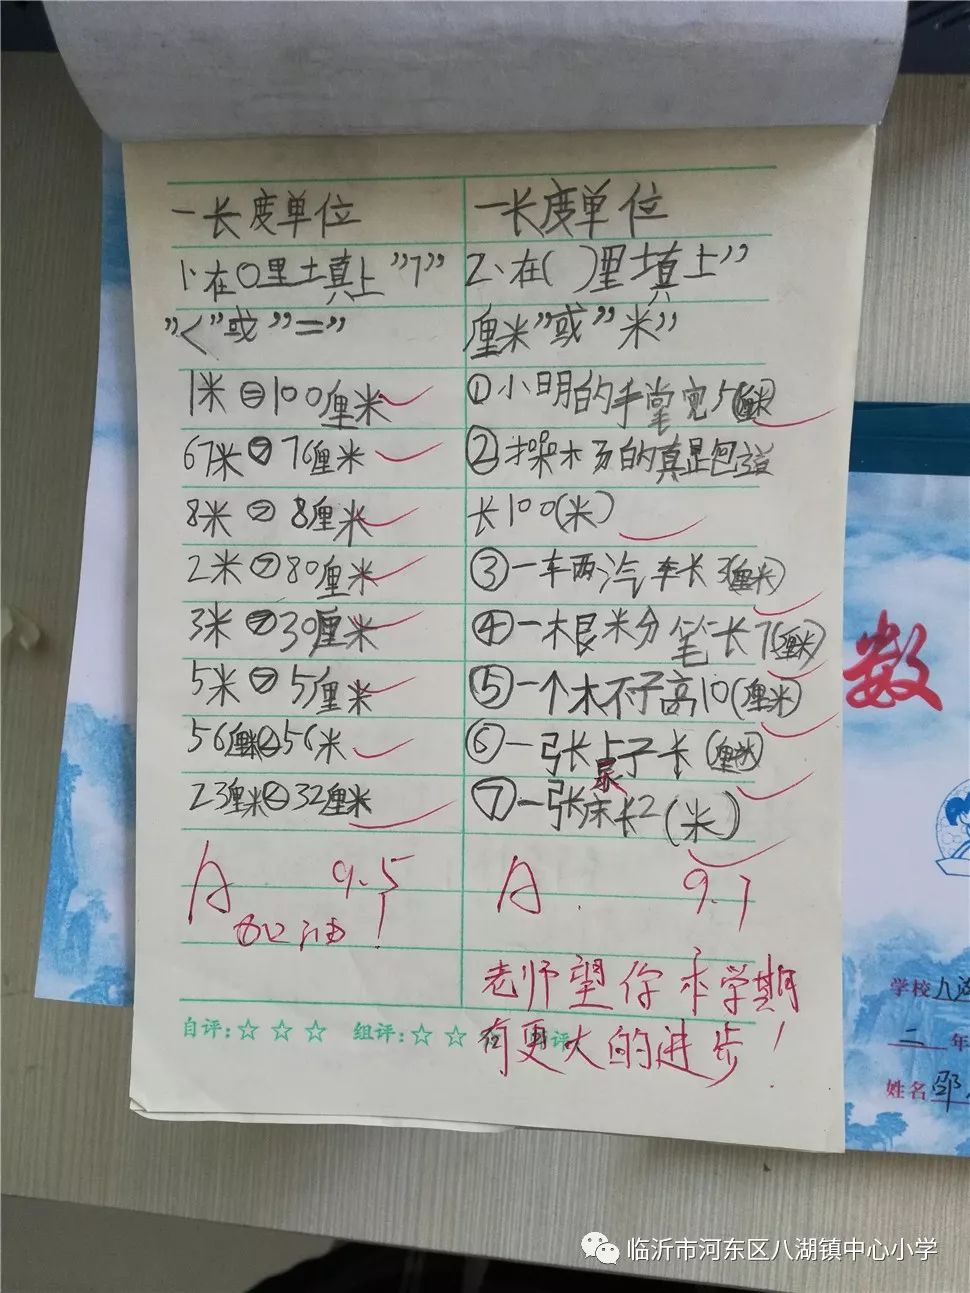 一长度单位
1、在○里填上"＞"
"＜"或"＝"
1米＝100厘米
67米＞76厘米
8米＞8厘米
2米＞80厘米
3米＞30厘米
5米＞5厘米
56厘米＜56米
23厘米＜32厘米
A 9.5
加油！
一长度单位
2、在( )里填上"
厘米"或"米"
①小明的手掌宽5(厘米)
②操场的
长100(米)
③一车两汽车长3(厘米)
④一根米分笔长7(厘米)
⑤一个木不子高10(厘米)
⑥一张桌子长(厘米)
⑦一张床长2(米)
A 9.7
老师望你本学期
有更大的进步！
自评：☆ ☆ ☆ 组评：☆ ☆ 评
数
学校八湖
二年
姓名邵
临沂市河东区八湖镇中心小学